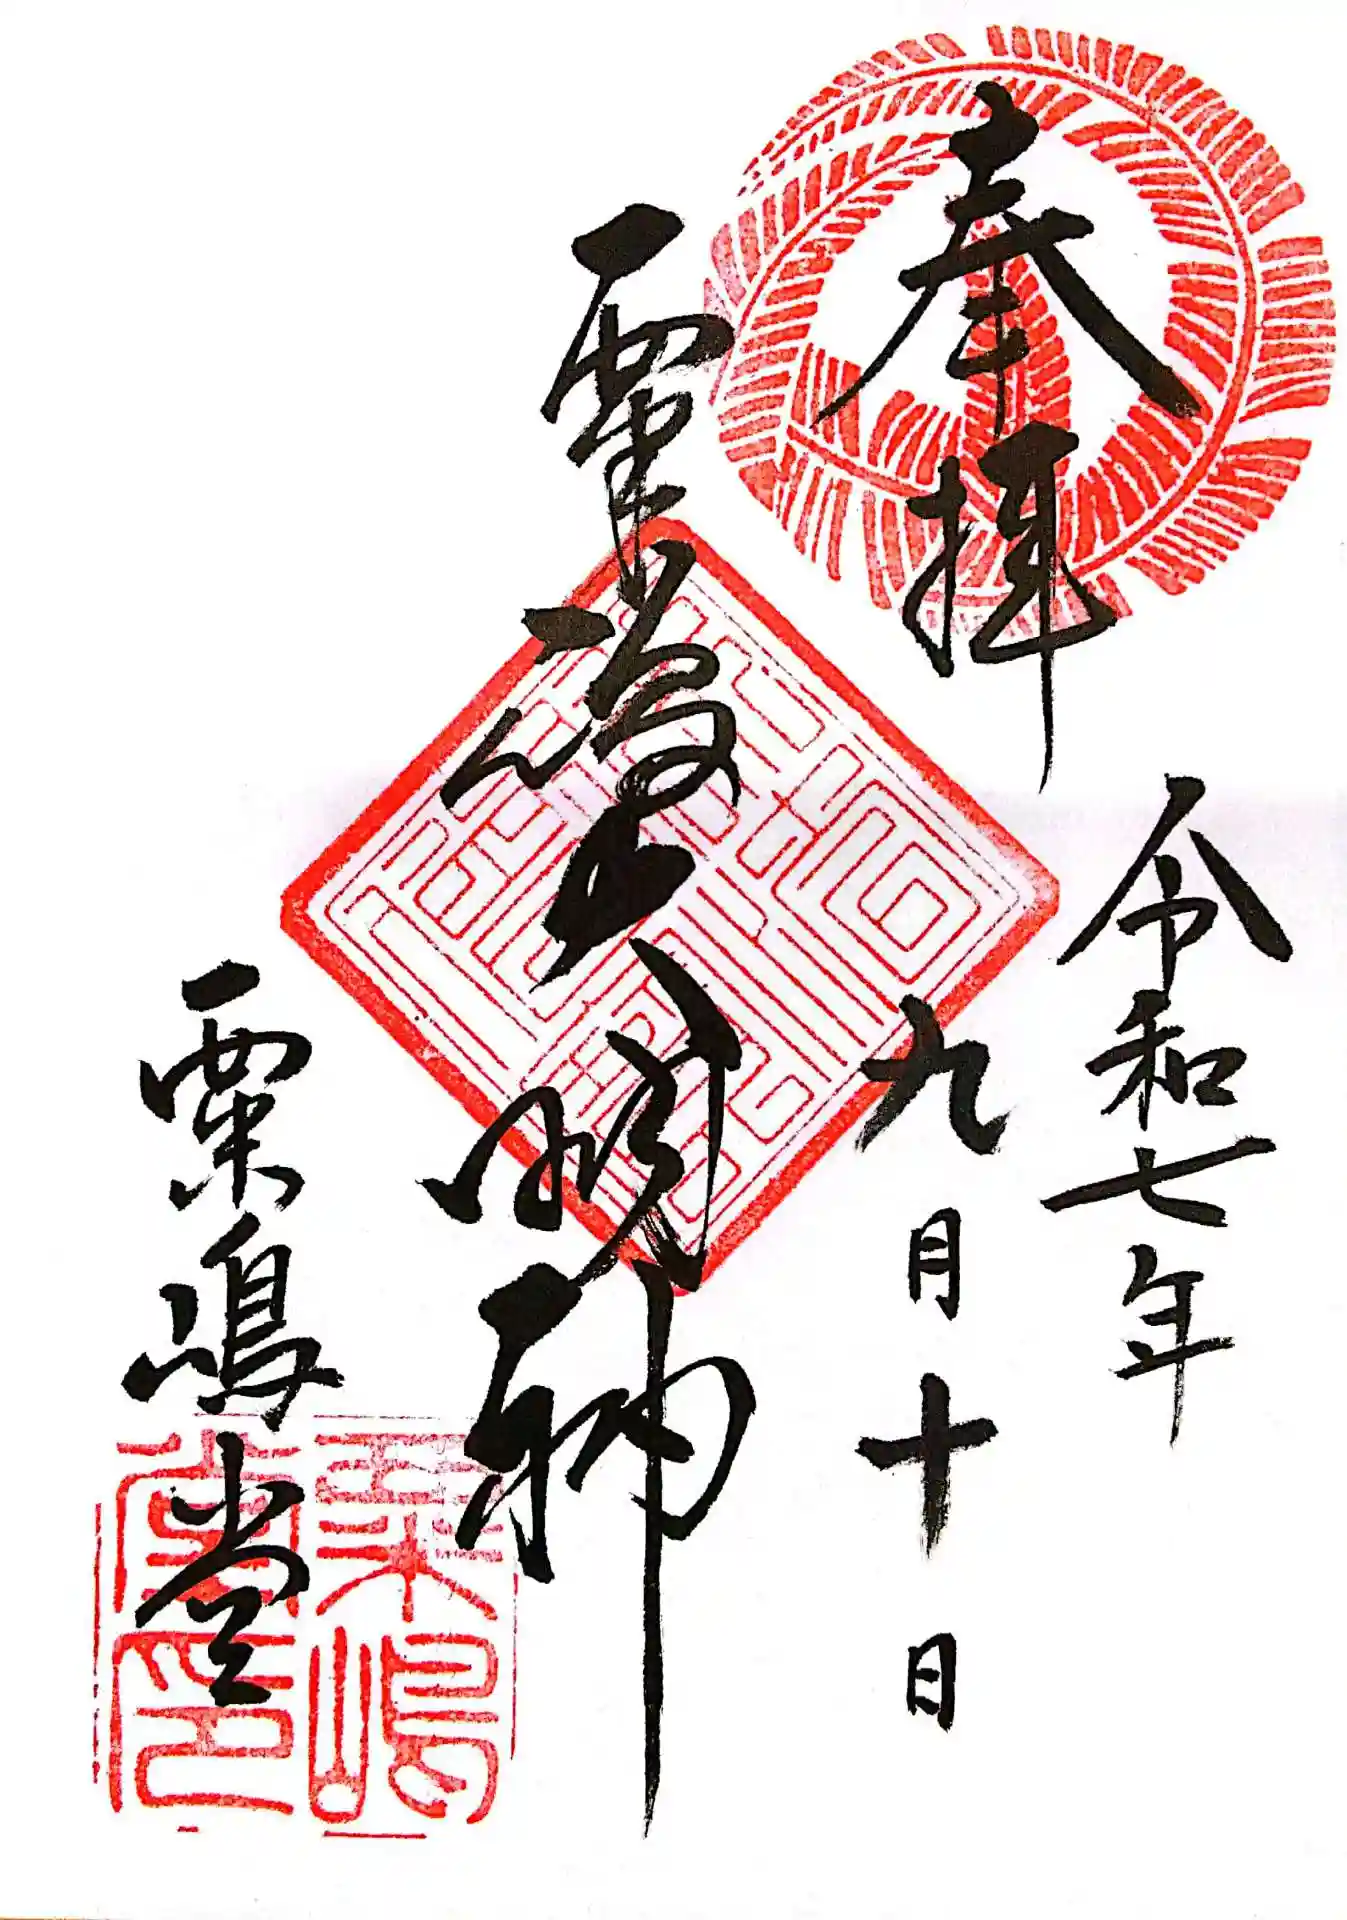 奉拝
令和七年
九月十日
粟嶋大明神
粟嶋堂
粟嶋
堂印